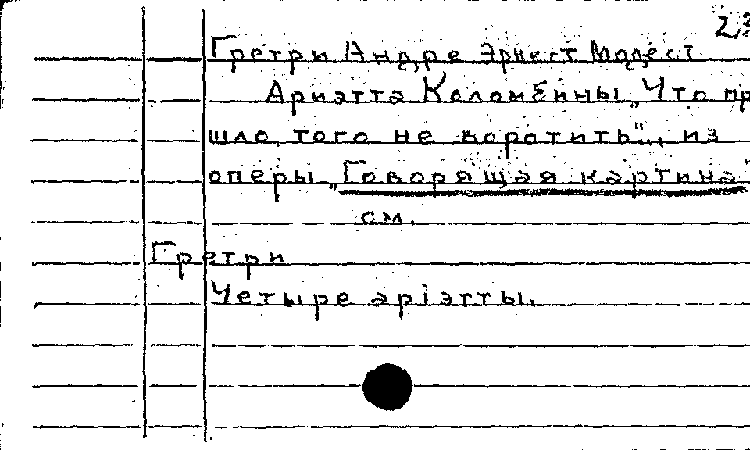 Гретри Андре Эрнест Модест
Ариэтта Коломбины „Что пр
шло, того не воротить"., из
оперы „Говорящая картина
см.
Гретри
Четыре арiэтты.